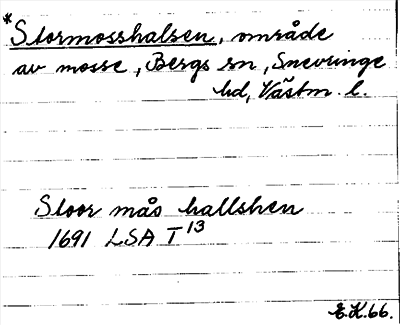 *Stormosshalsen, område
av mosse, Bergs sn, Snevringe
hd, Västm. l.
Stoor mås hallshen
1691 LSA T 13
E.K. 66.